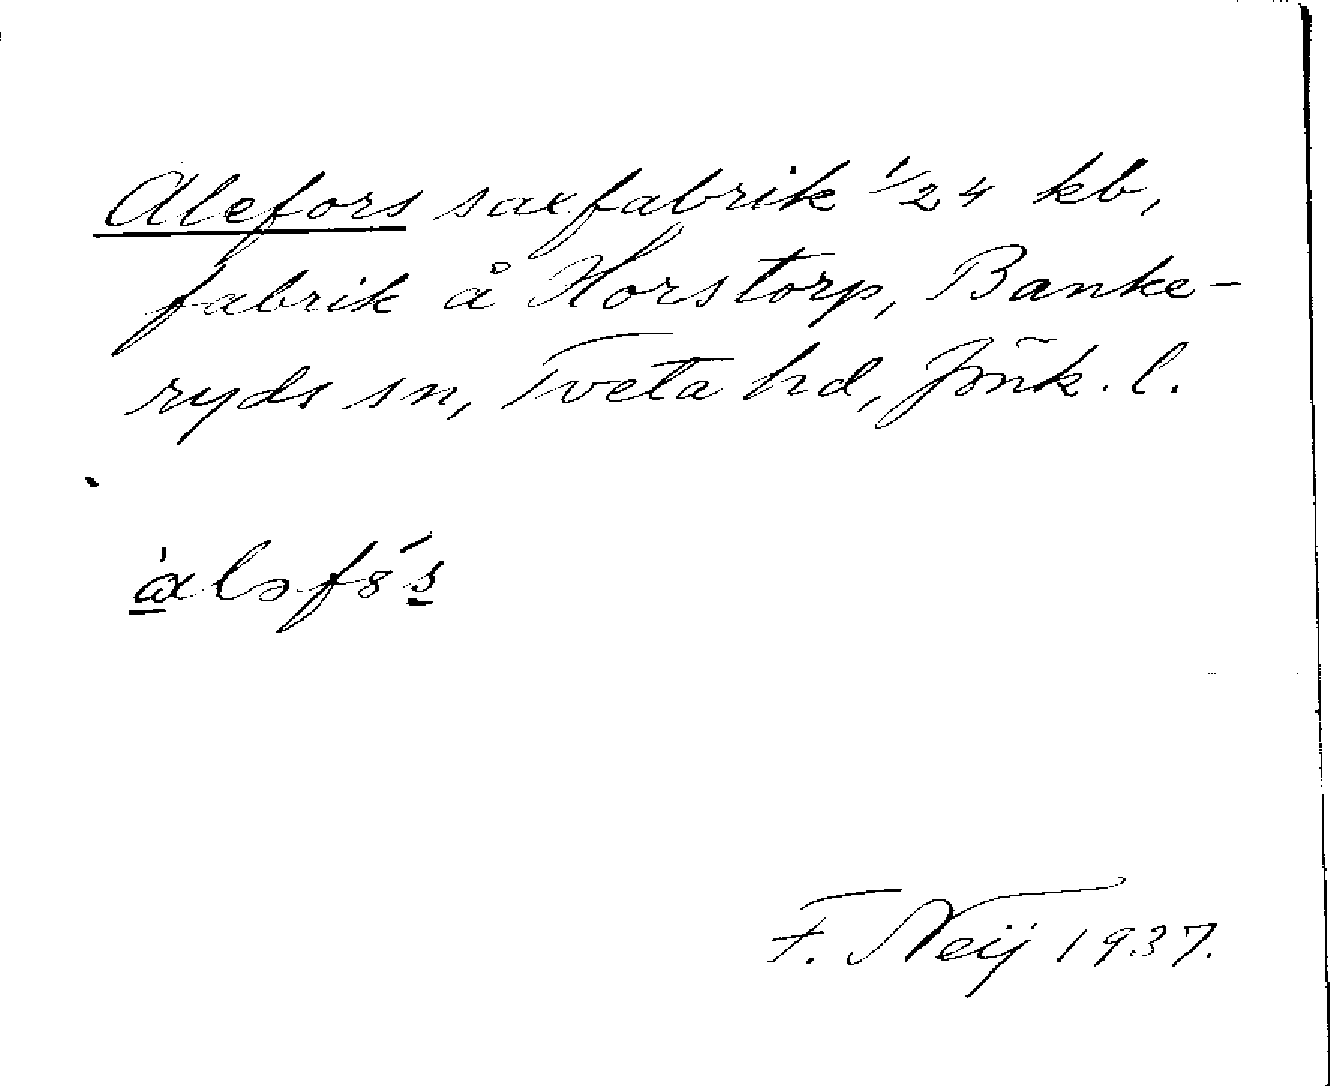 Alefors saxfabrik 1/24 kb,
fabrik å Horstorp, Banke-
ryds sn, Tveta hd, Jönk. l.
F. Neij 1937.